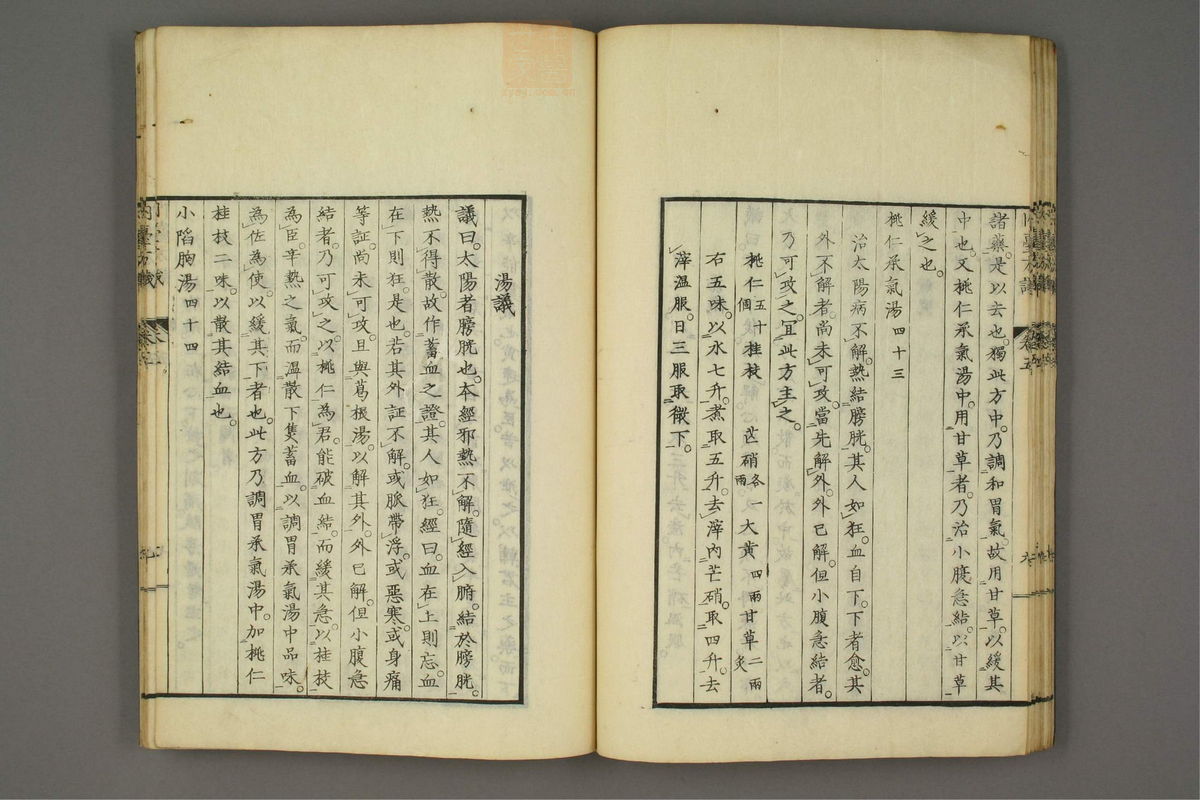 諸藥。是以去也。獨此方中。乃調和胃氣。故用甘草。以緩其
中也。又桃仁承氣湯中。用甘草者。乃治小腹急結。以甘草
緩之也。
桃仁承氣湯四十三
治太陽病不解。熱結膀胱。其人如狂。血自下。下者愈。其
外不解者。尚未可攻。當先解外。外已解。但小腹急結者。
乃可攻之。宜此方主之。
桃仁五十個 桂枝 芒硝各一兩 大黃四兩 甘草二兩炙
右五味。以水七升。煮取五升。去滓內芒硝。取四升。去
滓溫服。日三服取微下。
湯議
議曰。太陽者膀胱也。本經邪熱不解。隨經入腑。結於膀胱。
熱不得散。故作蓄血之證。其人如狂。經曰。血在上則忘。血
在下則狂。是也。若其外証不解。或脈帶浮。或惡寒。或身痛
等証。尚未可攻。且與葛根湯。以解其外。外已解但小腹急
結者。乃可攻之。以桃仁為君。能破血結。而緩其急。以桂枝
為臣。辛熱之氣。而溫散下隻蓄血。以調胃承氣湯中品味。
為佐為使。以緩其下者也。此方乃調胃承氣湯中。加桃仁
桂枝二味。以散其結血也。
小陷胸湯四十四